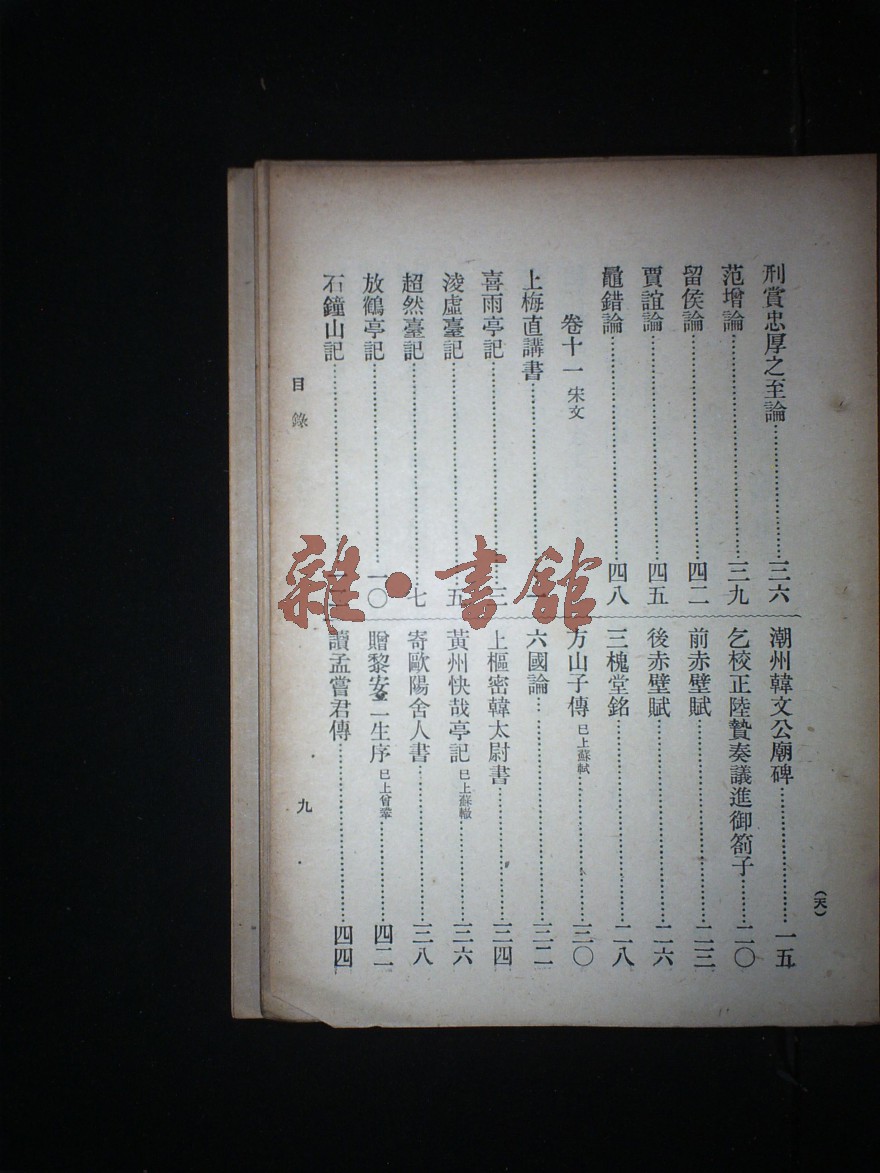 刑賞忠厚之至論…三六
范增論…三九
留侯論…四二
賈誼論…四五
鼂錯論…四八
卷十一 宋文
上梅直講書…
喜雨亭記…三
淩虛臺記…五
超然臺記…七
放鶴亭記…一〇
石鐘山記…
潮州韓文公廟碑…一五
乞校正陸贄奏議進御箚子…二〇
前赤壁賦…二三
後赤壁賦…二六
三槐堂銘…二八
方山子傳 已上蘇軾…三〇
六國論…三二
上樞密韓太尉書…三四
黃州快哉亭記 已上蘇轍…三六
寄歐陽舍人書…三八
贈黎安二生序 已上曾鞏…四二
讀孟嘗君傳…四四
目錄
九
（天）
雜·書館